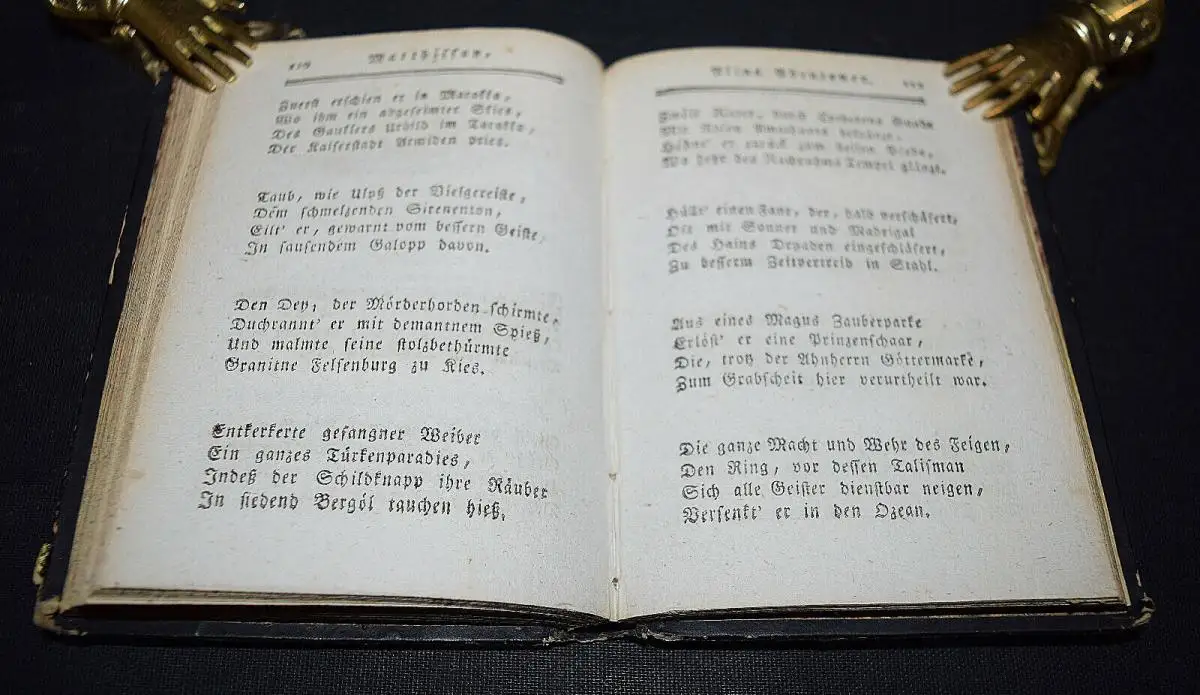 Matthisson.
Zuerst erschien er in Marokko,
Wo ihm ein abgefeimter Skies,
Des Gauklers Urbild im Tarokko,
Der Kaiserstadt Armiden pries.
Taub, wie Ulyß der Vielgereiste,
Dem schmelzenden Sirenenton,
Eilt' er, gewarnt vom bessern Geiste,
In sausendem Galopp davon.
Den Dey, der Mörderhorden schirmte,
Durchrannt' er mit demantnem Spieß,
Und malmte seine stolzbethürmte
Granitne Felsenburg zu Kies.
Entkerkerte gefangner Weiber
Ein ganzes Türkenparadies,
Indeß der Schildknapp ihre Räuber
In siedend Bergöl tauchen hieß.
Zwölf Ritter, durch
Mit Rosen
er zurück zum
Wo hehr des Nachruhms Tempel glänzt.
Hüllt' einen Fant, der, bald verschäfert,
Oft mit Sonnet und Madrigal
Des Hains Dryaden eingeschläfert,
Zu besserm Zeitvertreib in Stahl.
Aus eines Magus Zauberparke
Erlöst' er eine Prinzenschaar,
Die, trotz der Ahnherrn Göttermarke,
Zum Grabscheit hier verurtheilt war.
Die ganze Macht und Wehr des Feigen,
Den Ring, vor dessen Talisman
Sich alle Geister dienstbar neigen,
Versenkt' er in den Ozean.